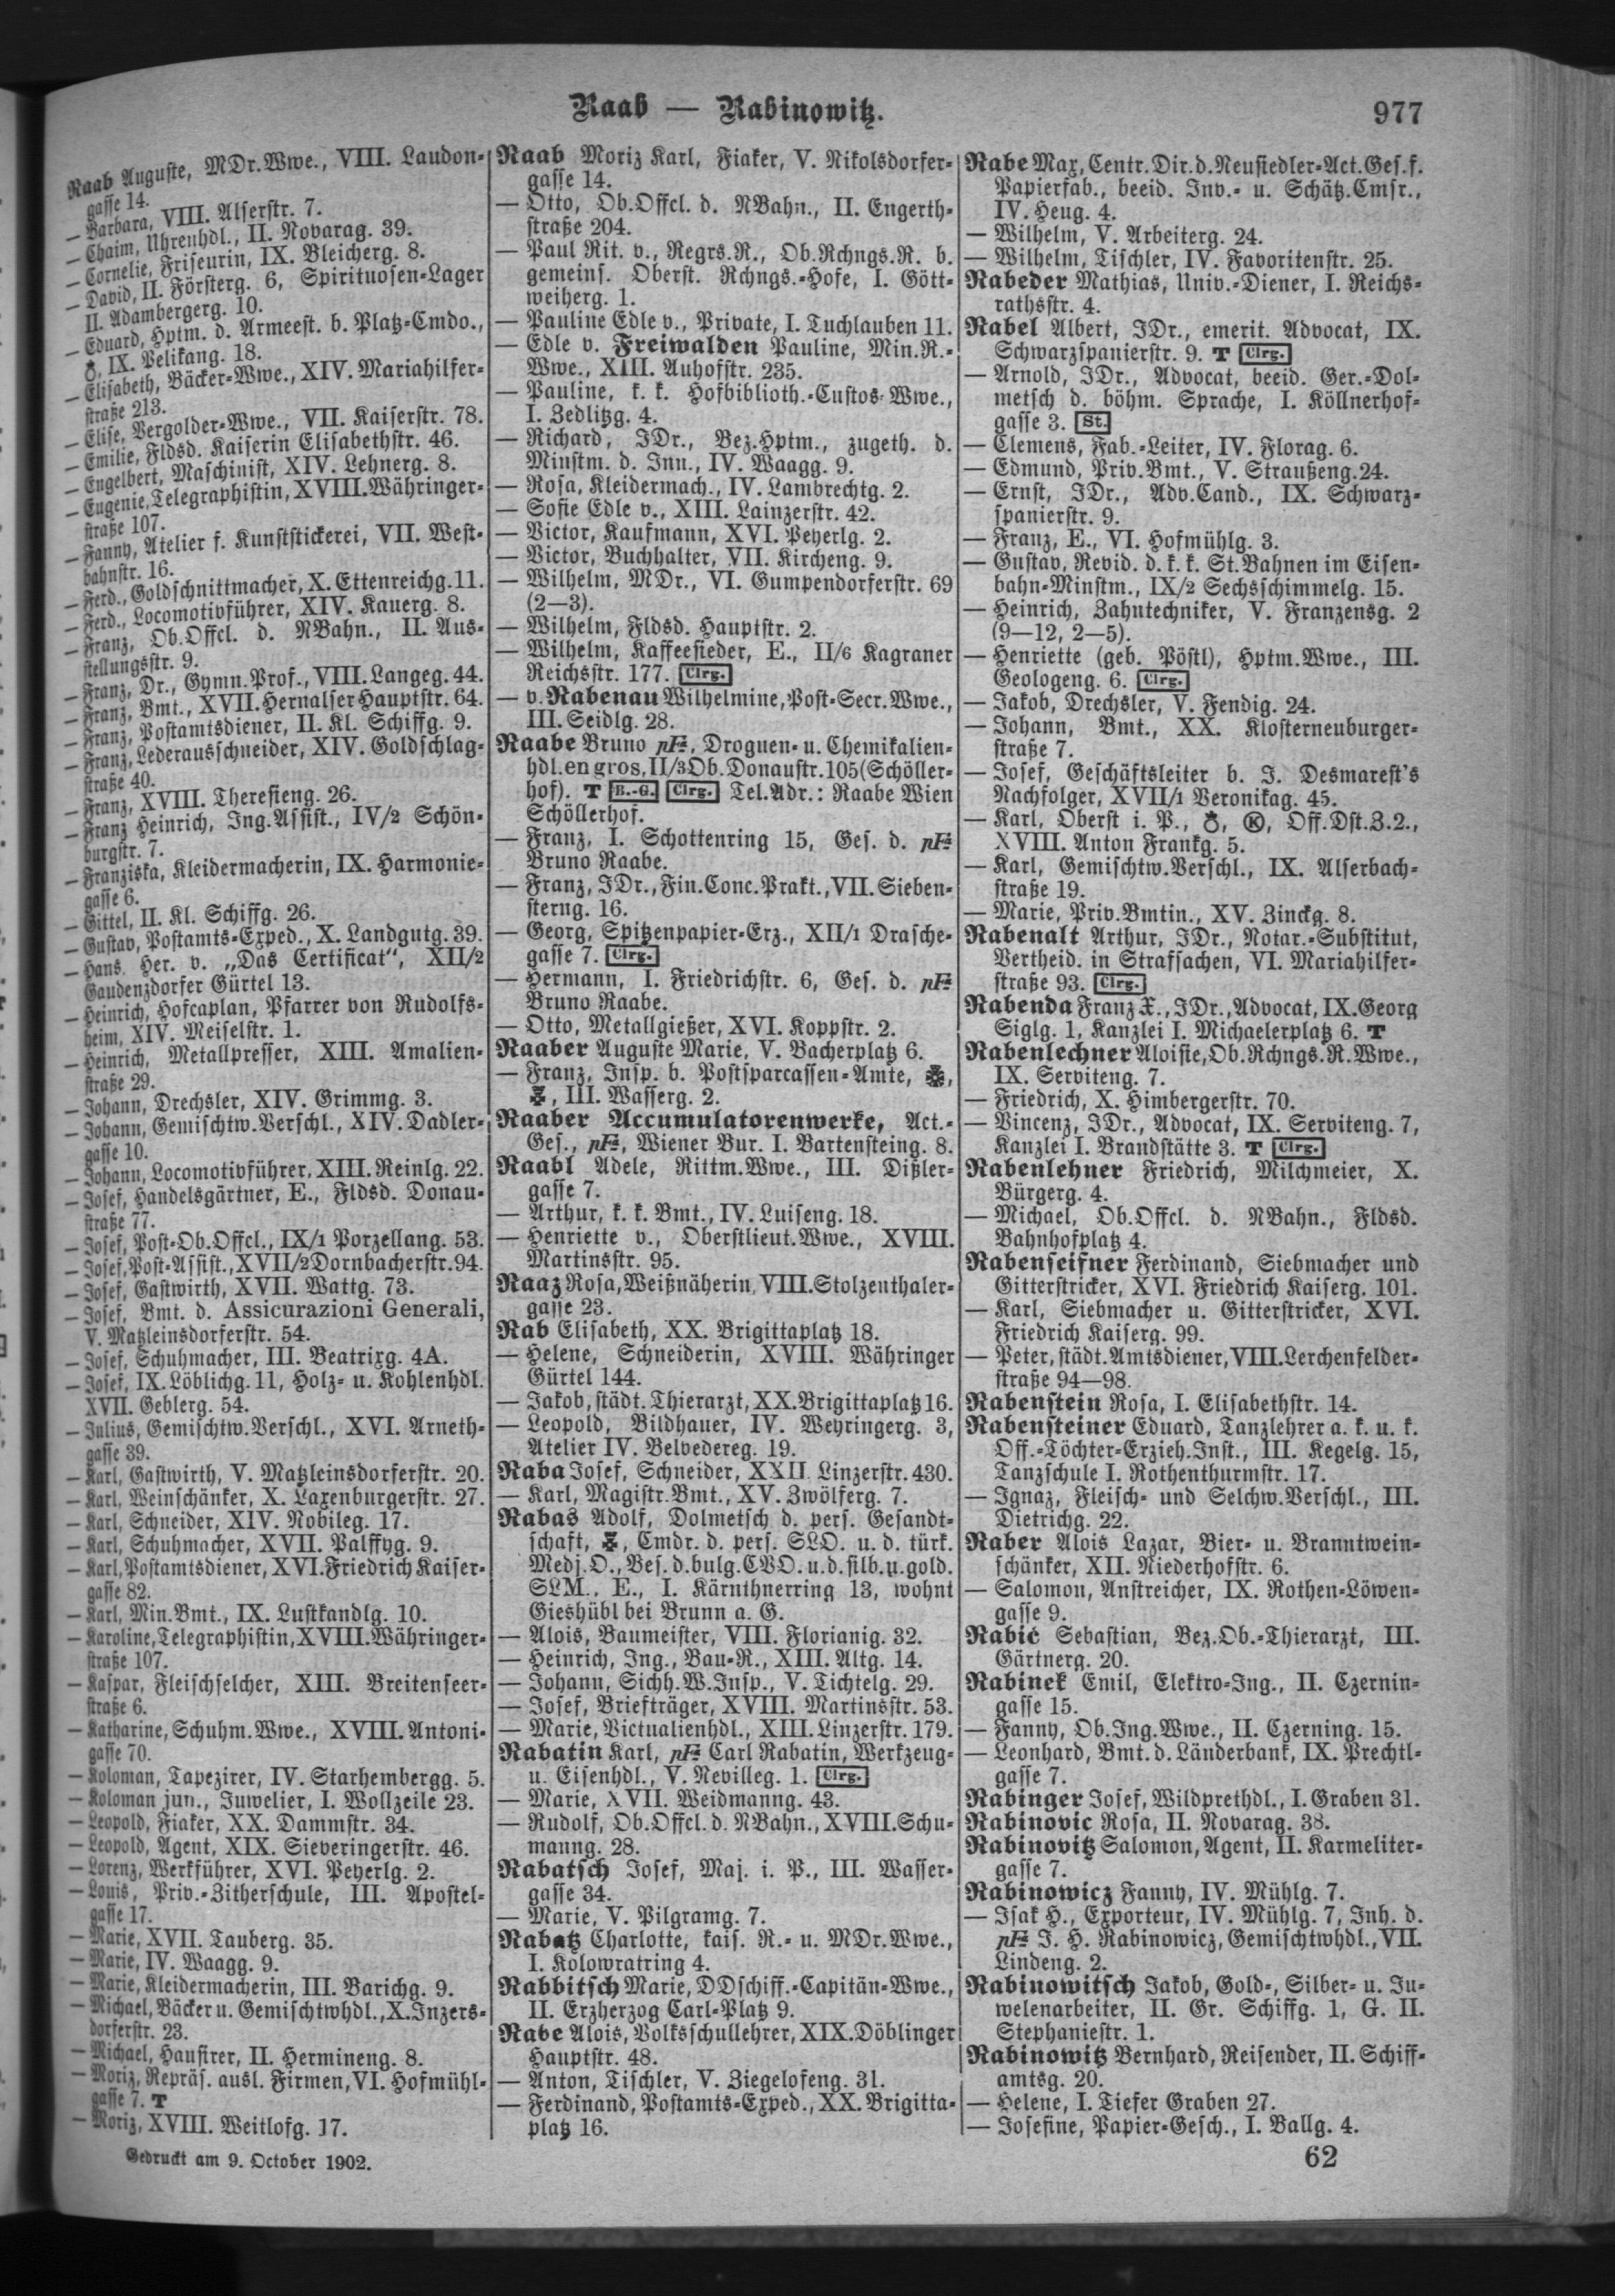 Raab — Rabinowitz.
977
Raab Auguste, MDr.Wwe., VIII. Laudon-
gasse 14.
— Barbara, VIII. Alserstr. 7.
— Chaim, Uhrenhdl., II. Novarag. 39.
— Cornelie, Friseurin, IX. Bleicherg. 8.
— David, II. Försterg. 6, Spirituosen-Lager
II. Adambergerg. 10.
— Eduard, Hptm. d. Armeest. b. Platz-Cmdo.,
IX. Pelikang. 18.
— Elisabeth, Bäcker-Wwe., XIV. Mariahilfer-
straße 213.
— Elise, Vergolder-Wwe., VII. Kaiserstr. 78.
— Emilie, Fldsd. Kaiserin Elisabethstr. 46.
— Engelbert, Maschinist, XIV. Lehnerg. 8.
— Eugenie, Telegraphistin, XVIII. Währinger-
straße 107.
— Fanny, Atelier f. Kunststickerei, VII. West-
bahnstr. 16.
— Ferd., Goldschnittmacher, X. Ettenreichg. 11.
— Ferd., Locomotivführer, XIV. Kauerg. 8.
— Franz, Ob.Offcl. d. NBahn., II. Aus-
stellungsstr. 9.
— Franz, Dr., Gymn.Prof., VIII. Langeg. 44.
— Franz, Bmt., XVII. Hernalser Hauptstr. 64.
— Franz, Postamtsdiener, II. Kl. Schiffg. 9.
— Franz, Lederausschneider, XIV. Goldschlag-
straße 40.
— Franz, XVIII. Theresieng. 26.
— Franz Heinrich, Ing.Assist., IV/2 Schön-
burgstr. 7.
— Franziska, Kleidermacherin, IX. Harmonie-
gasse 6.
— Gittel, II. Kl. Schiffg. 26.
— Gustav, Postamts-Exped., X. Landgutg. 39.
— Hans, Her. v. „Das Certificat“, XII/2
Gaudenzdorfer Gürtel 13.
— Heinrich, Hofcaplan, Pfarrer von Rudolfs-
heim, XIV. Meiselstr. 1.
— Heinrich, Metallpresser, XIII. Amalien-
straße 29.
— Johann, Drechsler, XIV. Grimmg. 3.
— Johann, Gemischtw.Verschl., XIV. Dadler-
gasse 10.
— Johann, Locomotivführer, XIII. Reinlg. 22.
— Josef, Handelsgärtner, E., Fldsd. Donau-
straße 77.
— Josef, Post-Ob.Offcl., IX/1 Porzellang. 53.
— Josef, Post-Assist., XVII/2 Dornbacherstr. 94.
— Josef, Gastwirth, XVII. Wattg. 73.
— Josef, Bmt. d. Assicurazioni Generali,
V. Matzleinsdorferstr. 54.
— Josef, Schuhmacher, III. Beatrixg. 4A.
— Josef, IX. Löblichg. 11, Holz- u. Kohlenhdl.
XVII. Geblerg. 54.
— Julius, Gemischtw.Verschl., XVI. Arneth-
gasse 39.
— Karl, Gastwirth, V. Matzleinsdorferstr. 20.
— Karl, Weinschänker, X. Laxenburgerstr. 27.
— Karl, Schneider, XIV. Nobileg. 17.
— Karl, Schuhmacher, XVII. Palffyg. 9.
— Karl, Postamtsdiener, XVI. Friedrich Kaiser-
gasse 82.
— Karl, Min.Bmt., IX. Lustkandlg. 10.
— Karoline, Telegraphistin, XVIII. Währinger-
straße 107.
— Kaspar, Fleischselcher, XIII. Breitenseer-
straße 6.
— Katharine, Schuhm.Wwe., XVIII. Antoni-
gasse 70.
— Koloman, Tapezirer, IV. Starhembergg. 5.
— Koloman jun., Juwelier, I. Wollzeile 23.
— Leopold, Fiaker, XX. Dammstr. 34.
— Leopold, Agent, XIX. Sieveringerstr. 46.
— Lorenz, Werkführer, XVI. Peyerlg. 2.
— Louis, Priv.-Zitherschule, III. Apostel-
gasse 17.
— Marie, XVII. Tauberg. 35.
— Marie, IV. Waagg. 9.
— Marie, Kleidermacherin, III. Barichg. 9.
— Michael, Bäcker u. Gemischtwhdl., X. Inzers-
dorferstr. 23.
— Michael, Hausirer, II. Hermineng. 8.
— Moriz, Repräs. ausl. Firmen, VI. Hofmühl-
gasse 7. T
— Moriz, XVIII. Weitlofg. 17.
Gedruckt am 9. October 1902.
Raab Moriz Karl, Fiaker, V. Nikolsdorfer-
gasse 14.
— Otto, Ob.Offcl. d. NBahn., II. Engerth-
straße 204.
— Paul Rit. v., Regrs.R., Ob.Rchngs.R. b.
gemeins. Oberst. Rchngs.-Hofe, I. Gött-
weiherg. 1.
— Pauline Edle v., Private, I. Tuchlauben 11.
— Edle v. Freiwalden Pauline, Min.R.-
Wwe., XIII. Auhofstr. 235.
— Pauline, k. k. Hofbiblioth.-Custos-Wwe.,
I. Zedlitzg. 4.
— Richard, JDr., Bez.Hptm., zugeth. d.
Minstm. d. Inn., IV. Waagg. 9.
— Rosa, Kleidermach., IV. Lambrechtg. 2.
— Sofie Edle v., XIII. Lainzerstr. 42.
— Victor, Kaufmann, XVI. Peyerlg. 2.
— Victor, Buchhalter, VII. Kircheng. 9.
— Wilhelm, MDr., VI. Gumpendorferstr. 69
(2—3).
— Wilhelm, Fldsd. Hauptstr. 2.
— Wilhelm, Kaffeesieder, E., II/6 Kagraner
Reichsstr. 177. Clrg.
— v. Rabenau Wilhelmine, Post-Secr.Wwe.,
III. Seidlg. 28.
Raabe Bruno pFa, Droguen- u. Chemikalien-
hdl. en gros, II/3 Ob. Donaustr. 105 (Schöller-
hof). T B.-G. Clrg. Tel.Adr.: Raabe Wien
Schöllerhof.
— Franz, I. Schottenring 15, Ges. d. pFa
Bruno Raabe.
— Franz, JDr., Fin.Conc.Prakt., VII. Sieben-
sterng. 16.
— Georg, Spitzenpapier-Erz., XII/1 Drasche-
gasse 7. Clrg.
— Hermann, I. Friedrichstr. 6, Ges. d. pFa
Bruno Raabe.
— Otto, Metallgießer, XVI. Koppstr. 2.
Raaber Auguste Marie, V. Bacherplatz 6.
— Franz, Insp. b. Postsparcassen-Amte,
III. Wasserg. 2.
Raaber Accumulatorenwerke, Act.-
Ges., pFa, Wiener Bur. I. Bartensteing. 8.
Raabl Adele, Rittm.Wwe., III. Dißler-
gasse 7.
— Arthur, k. k. Bmt., IV. Luiseng. 18.
— Henriette v., Oberstlieut.Wwe., XVIII.
Martinsstr. 95.
Raaz Rosa, Weißnäherin, VIII. Stolzenthaler-
gasse 23.
Rab Elisabeth, XX. Brigittaplatz 18.
— Helene, Schneiderin, XVIII. Währinger
Gürtel 144.
— Jakob, städt. Thierarzt, XX. Brigittaplatz 16.
— Leopold, Bildhauer, IV. Weyringerg. 3,
Atelier IV. Belvedereg. 19.
Raba Josef, Schneider, XXII. Linzerstr. 430.
— Karl, Magistr.Bmt., XV. Zwölferg. 7.
Rabas Adolf, Dolmetsch d. pers. Gesandt-
schaft, Cmdr. d. pers. SLO. u. d. türk.
Medj.O., Bes. d. bulg. CVO. u. d. silb. u. gold.
SLM., E., I. Kärnthnerring 13, wohnt
Gieshübl bei Brunn a. G.
— Alois, Baumeister, VIII. Florianig. 32.
— Heinrich, Ing., Bau-R., XIII. Altg. 14.
— Johann, Sichh.W.Insp., V. Tichtelg. 29.
— Josef, Briefträger, XVIII. Martinsstr. 53.
— Marie, Victualienhdl., XIII. Linzerstr. 179.
Rabatin Karl, pFa Carl Rabatin, Werkzeug-
u. Eisenhdl., V. Nevilleg. 1. Clrg.
— Marie, XVII. Weidmanng. 43.
— Rudolf, Ob.Offcl. d. NBahn., XVIII. Schu-
manng. 28.
Rabatsch Josef, Maj. i. P., III. Wasser-
gasse 34.
— Marie, V. Pilgramg. 7.
Rabatz Charlotte, kais. R.- u. MDr.Wwe.,
I. Kolowratring 4.
Rabbitsch Marie, DDschiff.-Capitän-Wwe.,
II. Erzherzog Carl-Platz 9.
Rabe Alois, Volksschullehrer, XIX. Döblinger
Hauptstr. 48.
— Anton, Tischler, V. Ziegelofeng. 31.
— Ferdinand, Postamts-Exped., XX. Brigitta-
platz 16.
Rabe Max, Centr.Dir. d. Neusiedler-Act.Ges. f.
Papierfab., beeid. Inv.- u. Schätz.Cmsr.,
IV. Heug. 4.
— Wilhelm, V. Arbeiterg. 24.
— Wilhelm, Tischler, IV. Favoritenstr. 25.
Rabeder Mathias, Univ.-Diener, I. Reichs-
rathsstr. 4.
Rabel Albert, JDr., emerit. Advocat, IX.
Schwarzspanierstr. 9. T Clrg.
— Arnold, JDr., Advocat, beeid. Ger.-Dol-
metsch d. böhm. Sprache, I. Köllnerhof-
gasse 3. St.
— Clemens, Fab.-Leiter, IV. Florag. 6.
— Edmund, Priv.Bmt., V. Straußeng. 24.
— Ernst, JDr., Adv.Cand., IX. Schwarz-
spanierstr. 9.
— Franz, E., VI. Hofmühlg. 3.
— Gustav, Revid. d. k. k. St.Bahnen im Eisen-
bahn-Minstm., IX/2 Sechsschimmelg. 15.
— Heinrich, Zahntechniker, V. Franzensg. 2
(9—12, 2—5).
— Henriette (geb. Pöstl), Hptm.Wwe., III.
Geologeng. 6. Clrg.
— Jakob, Drechsler, V. Fendig. 24.
— Johann, Bmt., XX. Klosterneuburger-
straße 7.
— Josef, Geschäftsleiter b. J. Desmarest's
Nachfolger, XVII/1 Veronikag. 45.
— Karl, Oberst i. P., K, Off.Dst.Z.2.,
XVIII. Anton Frankg. 5.
— Karl, Gemischtw.Verschl., IX. Alserbach-
straße 19.
— Marie, Priv.Bmtin., XV. Zinckg. 8.
Rabenalt Arthur, JDr., Notar.-Substitut,
Vertheid. in Strafsachen, VI. Mariahilfer-
straße 93. Clrg.
Rabenda Franz X., JDr., Advocat, IX. Georg
Siglg. 1, Kanzlei I. Michaelerplatz 6. T
Rabenlechner Aloisie, Ob.Rchngs.R.Wwe.,
IX. Serviteng. 7.
— Friedrich, X. Himbergerstr. 70.
— Vincenz, JDr., Advocat, IX. Serviteng. 7,
Kanzlei I. Brandstätte 3. T Clrg.
Rabenlehner Friedrich, Milchmeier, X.
Bürgerg. 4.
— Michael, Ob.Offcl. d. NBahn., Fldsd.
Bahnhofplatz 4.
Rabenseifner Ferdinand, Siebmacher und
Gitterstricker, XVI. Friedrich Kaiserg. 101.
— Karl, Siebmacher u. Gitterstricker, XVI.
Friedrich Kaiserg. 99.
— Peter, städt. Amtsdiener, VIII. Lerchenfelder-
straße 94—98.
Rabenstein Rosa, I. Elisabethstr. 14.
Rabensteiner Eduard, Tanzlehrer a. k. u. k.
Off.-Töchter-Erzieh.Inst., III. Kegelg. 15,
Tanzschule I. Rothenthurmstr. 17.
— Ignaz, Fleisch- und Selchw.Verschl., III.
Dietrichg. 22.
Raber Alois Lazar, Bier- u. Branntwein-
schänker, XII. Niederhofstr. 6.
— Salomon, Anstreicher, IX. Rothen-Löwen-
gasse 9.
Rabić Sebastian, Bez.Ob.-Thierarzt, III.
Gärtnerg. 20.
Rabinek Emil, Elektro-Ing., II. Czernin-
gasse 15.
— Fanny, Ob.Ing.Wwe., II. Czerning. 15.
— Leonhard, Bmt. d. Länderbank, IX. Prechtl-
gasse 7.
Rabinger Josef, Wildprethdl., I. Graben 31.
Rabinovic Rosa, II. Novarag. 38.
Rabinovitz Salomon, Agent, II. Karmeliter-
gasse 7.
Rabinowicz Fanny, IV. Mühlg. 7.
— Isak H., Exporteur, IV. Mühlg. 7, Inh. d.
pFa J. H. Rabinowicz, Gemischtwhdl., VII.
Lindeng. 2.
Rabinowitsch Jakob, Gold-, Silber- u. Ju-
welenarbeiter, II. Gr. Schiffg. 1, G. II.
Stephaniestr. 1.
Rabinowitz Bernhard, Reisender, II. Schiff-
amtsg. 20.
— Helene, I. Tiefer Graben 27.
— Josefine, Papier-Gesch., I. Ballg. 4.
62